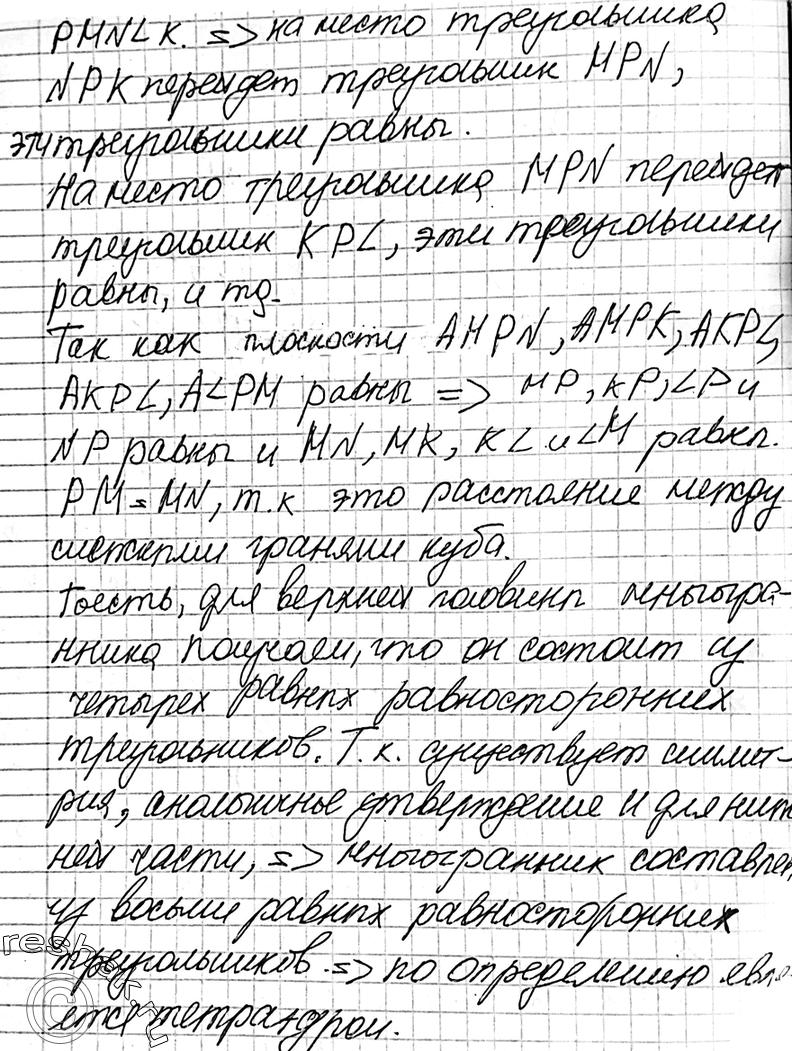 PMNLK. => на место треугольника
NPK перейдет треугольник MPN,
эти треугольники равны.
На место треугольника MPN перейдет
треугольник KPL, эти треугольники
равны, и тд.
Так как плоскости AMPN, AMPK, AKPL,
AKPL, ALPM равны => MP, KP, LP и
NP равны и MN, MK, KL и LM равны.
PM = MN, т.к это расстояние между
смежными гранями куба.
Тоесть, для верхней половины многогра-
нника получаем, что он состоит из
четырех равных равносторонних
треугольников. Т.к. существует симмет-
рия, аналогичное утверждение и для ниж
ней части, => многогранник составлен
из восьми равных равносторонних
треугольников. => по определению явля-
ется тетраэдром.
reshak.ru